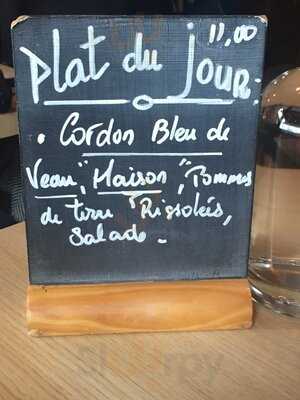 11,00
Plat du jour:
. Cordon Bleu de
Veau, "Maison", Pommes
de terre Rissolées,
Salade.